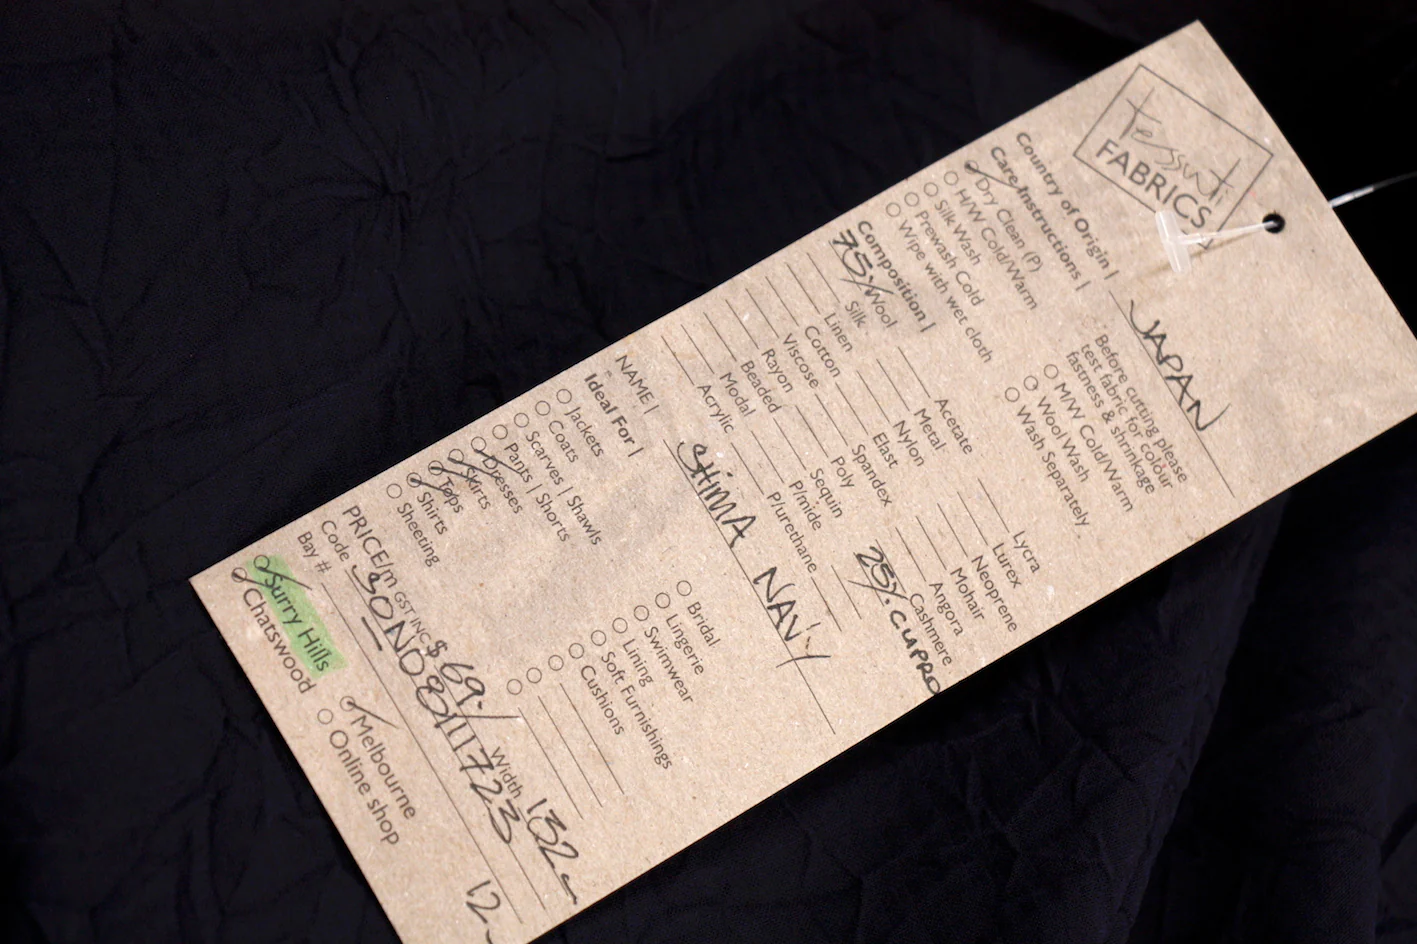 tessuti
FABRICS
Country of Origin | JAPAN
Care Instructions |
Dry Clean (P)
H/W Cold/Warm
Silk Wash
Prewash Cold
Wipe with wet cloth
Before cutting please
test fabric for colour
fastness & shrinkage
M/W Cold/Warm
Wool Wash
Wash Separately
Composition |
75% Wool
Silk
Linen
Cotton
Viscose
Rayon
Beaded
Modal
Acrylic
Acetate
Metal
Nylon
Elast
Spandex
Poly
Sequin
P/mide
P/urethane
Lycra
Lurex
Neoprene
Mohair
Angora
Cashmere
25% CUPRO
NAME | SHIMA NAVY
Ideal For |
Jackets
Coats
Scarves | Shawls
Pants | Shorts
Dresses
Skirts
Tops
Shirts
Sheeting
Bridal
Lingerie
Swimwear
Lining
Soft Furnishings
Cushions
PRICE/m GST INC $ 69. Width 132
Code
Bay # 12
Surry Hills
Chatswood
Melbourne
Online shop